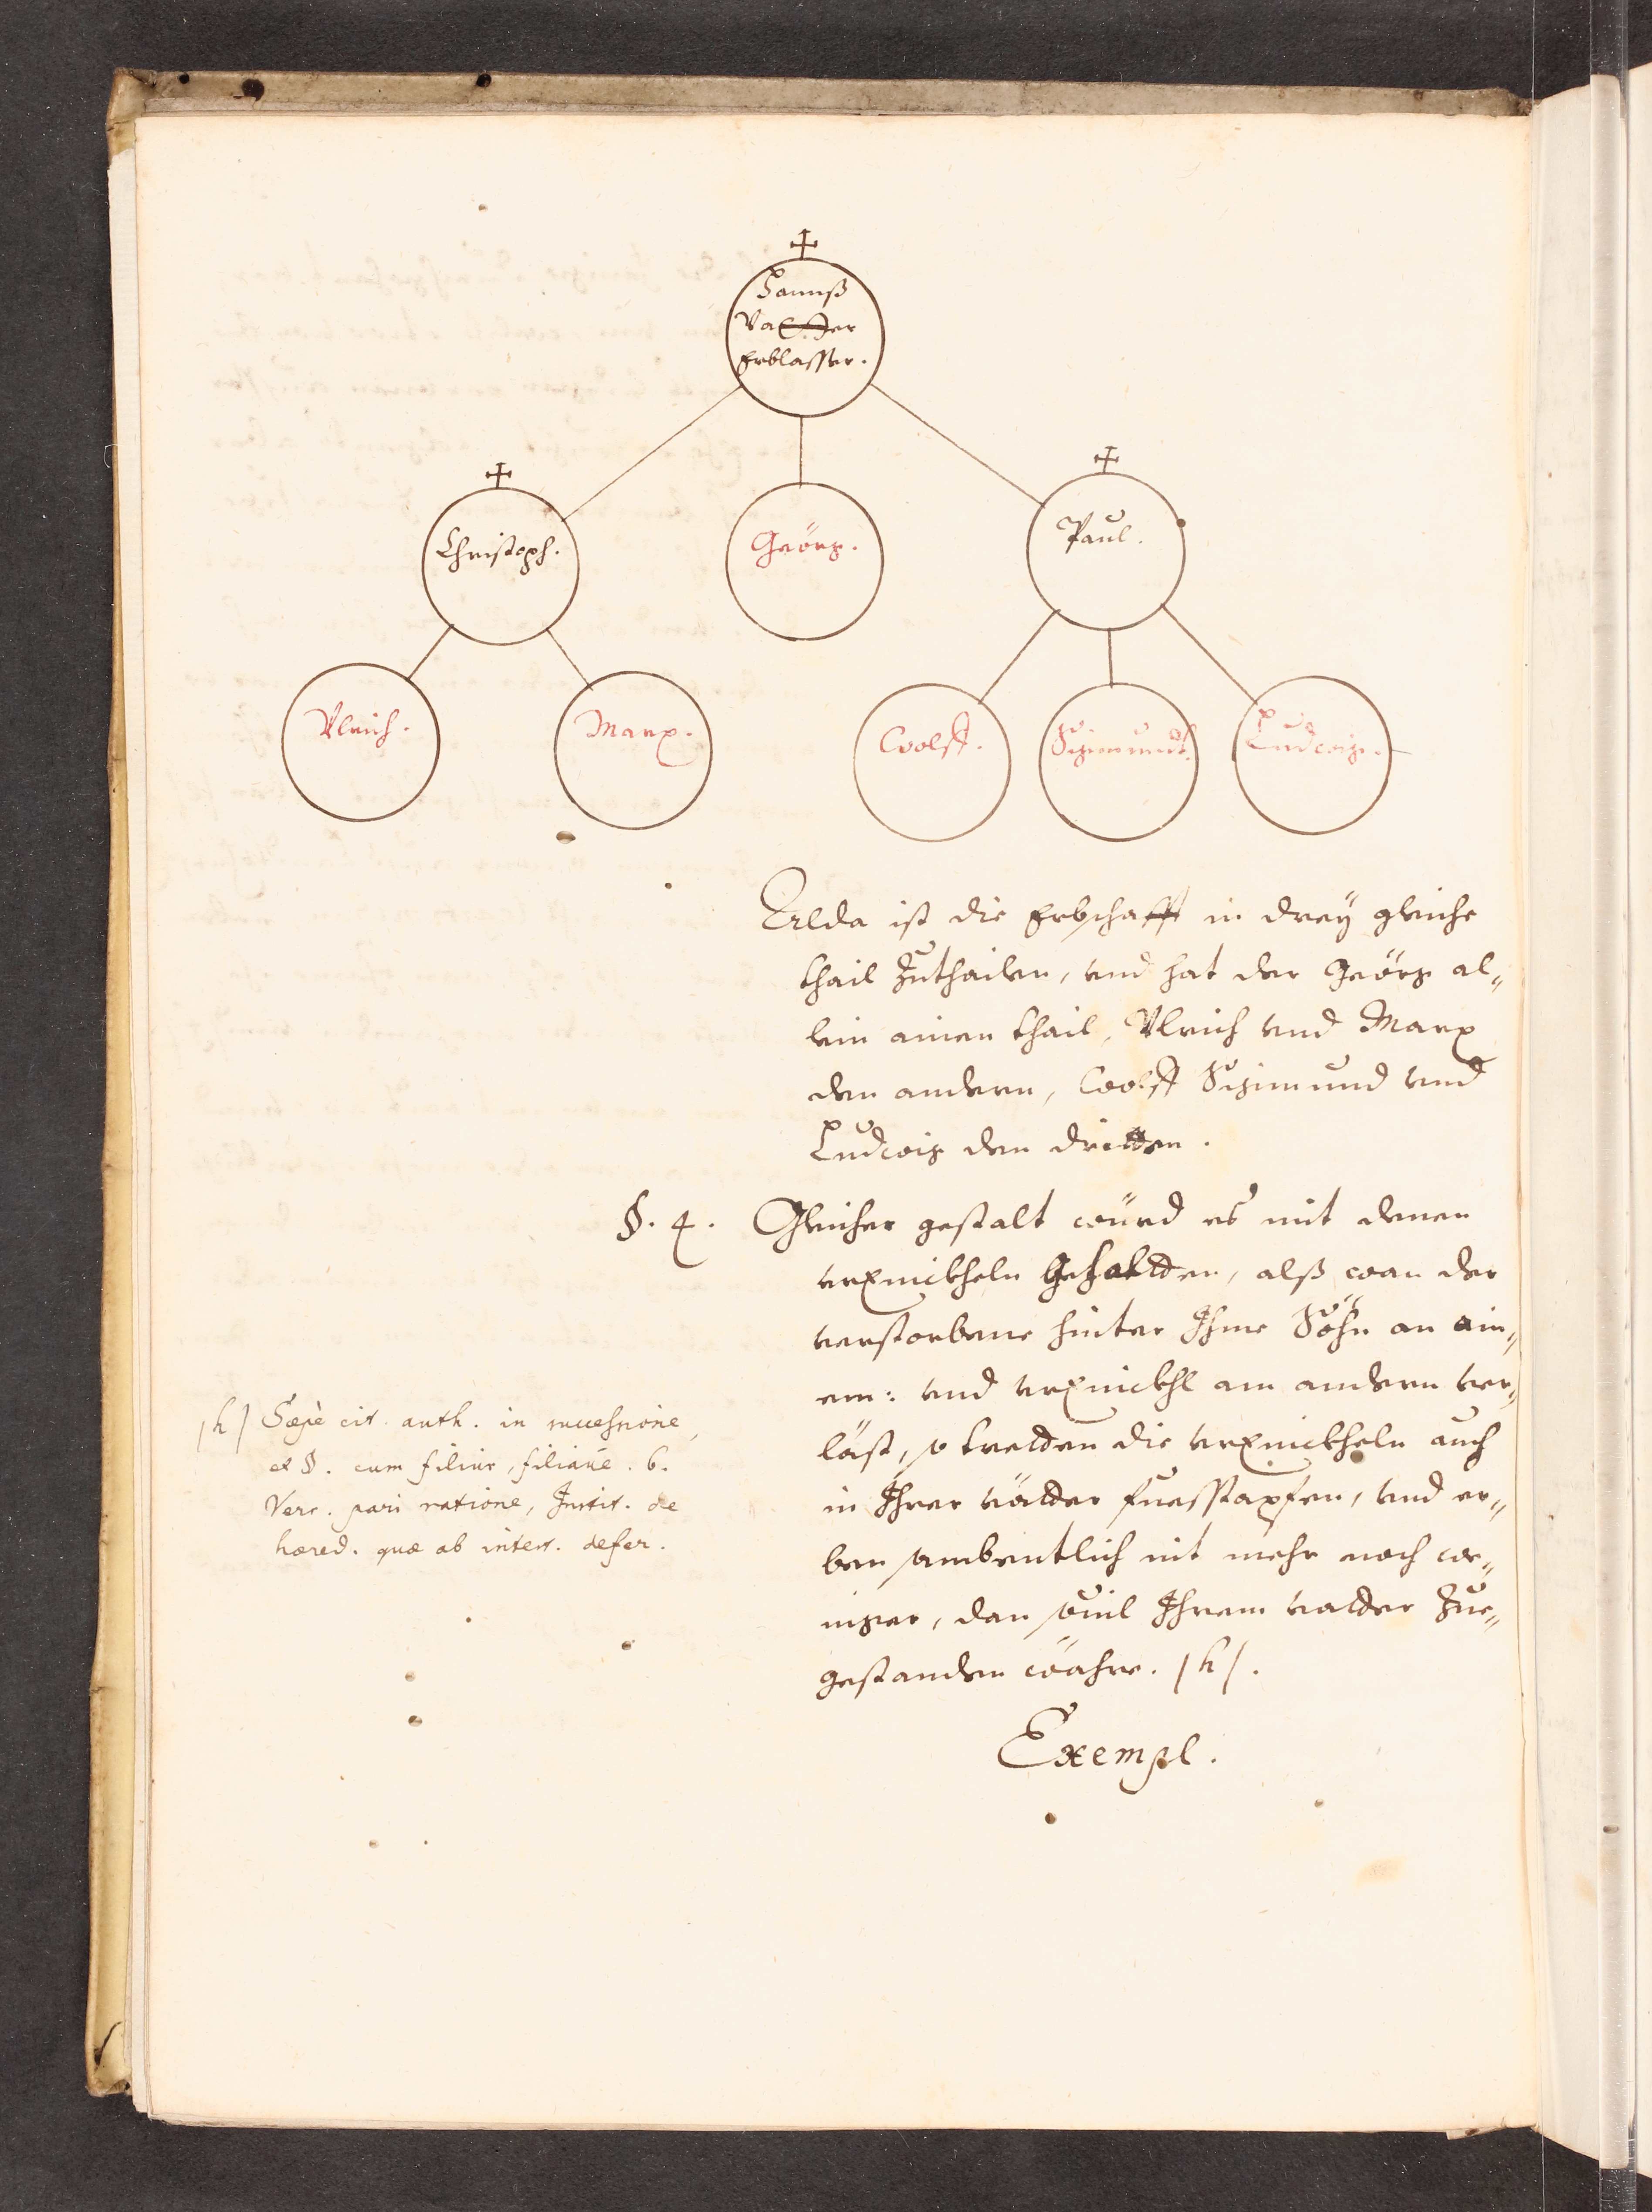 Hannß
Vatter
Erblasser.
Christoph.
Geörg.
Paul.
Vlrich.
Marx.
Wolff.
Sigmund.
Ludwig.
Alda ist die Erbschafft in dreÿ gleiche
thail Zuthailen, vnd hat der Geörg al„
lein ainen thail, Vlrich vnd Marx
den andern, Wolff Sigimund vnd
Ludwig den dritten.
§. 4. Gleicher gestalt würd es mit denen
vrEnickheln gehaltten, alß wan der
verstorbene hinter Ihme Söhn an ain„
em: vnd vrEnickhl am andern ver„
läst, so tretten die vrEnickheln auch
in Ihrer vätter fuesstapfen, vnd er„
ben sambentlich nit mehr noch we„
niger, dan souil Ihrem vatter Zue„
gestanden währe. /h/.
/h/ Sæpè cit. auth. in successione,
et §. cum filius, filiaúe. 6.
Vers. pari ratione, Instit. de
hæred. quæ ab intest. defer.
Exempl.